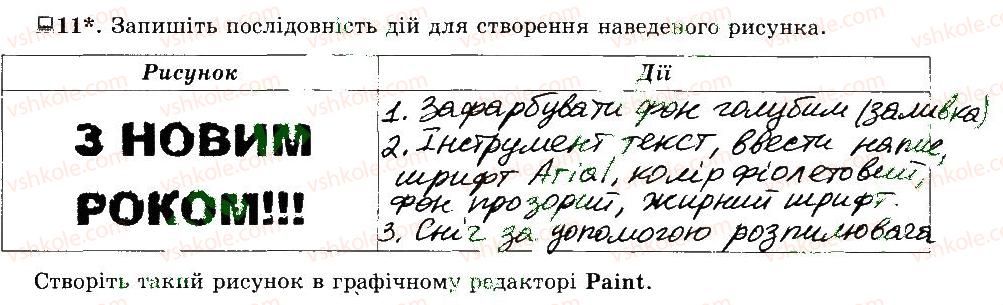 11*. Запишіть послідовність дій для створення наведеного рисунка.
Рисунок
Дії
З НОВИМ
РОКОМ!!!
1. Зафарбувати фон голубим (заливка)
2. Інструмент текст, ввести напис,
шрифт Arial, колір фіолетовий,
фон прозорий, жирний шрифт.
3. Сніг за допомогою розпилювача
Створіть такий рисунок в графічному редакторі Paint.